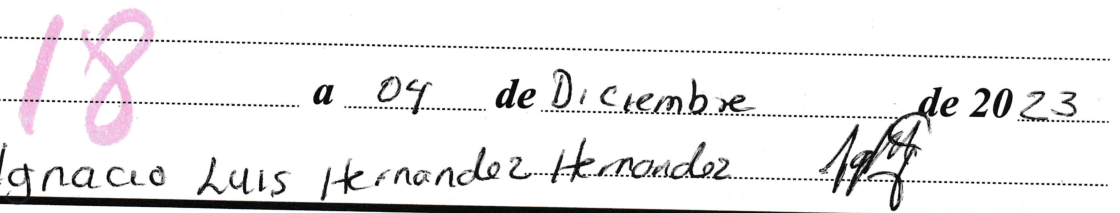 18
a 04 de Diciembre de 2023
Ignacio Luis Hernandez Hernandez